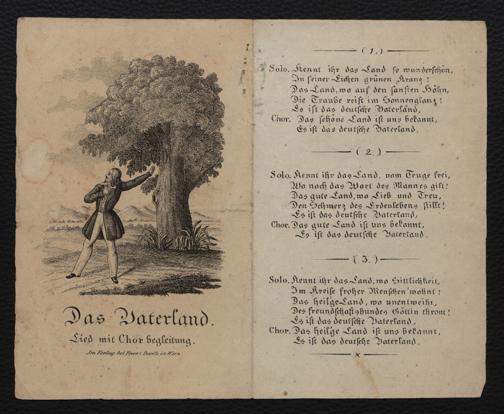 Das Vaterland.
Lied mit Chor begleitung.
Im Verlag bei Franz Barth in Wien.
(1.)
Solo. Kennt ihr das Land so wunderschön,
In seiner Eichen grünen Kranz!
Das Land, wo auf den sanften Höhn,
Die Traube reift im Sonnenglanz!
Es ist das deutsche Vaterland,
Chor. Das schöne Land ist uns bekannt,
Es ist das deutsche Vaterland.
(2.)
Solo. Kennt ihr das Land, vom Truge frei,
Wo noch das Wort des Mannes gilt!
Das gute Land, wo Lieb und Treu,
Den Schmerz des Erdenlebens stillt!
Es ist das deutsche Vaterland,
Chor. Das gute Land ist uns bekannt,
Es ist das deutsche Vaterland.
(3.)
Solo. Kennt ihr das Land, wo Sittlichkeit,
Im Kreise froher Menschen wohnt!
Das heilge Land, wo unentweiht,
Des freundschaftsbundes Göttin thront!
Es ist das deutsche Vaterland,
Chor. Das heilge Land ist uns bekannt,
Es ist das deutsche Vaterland.